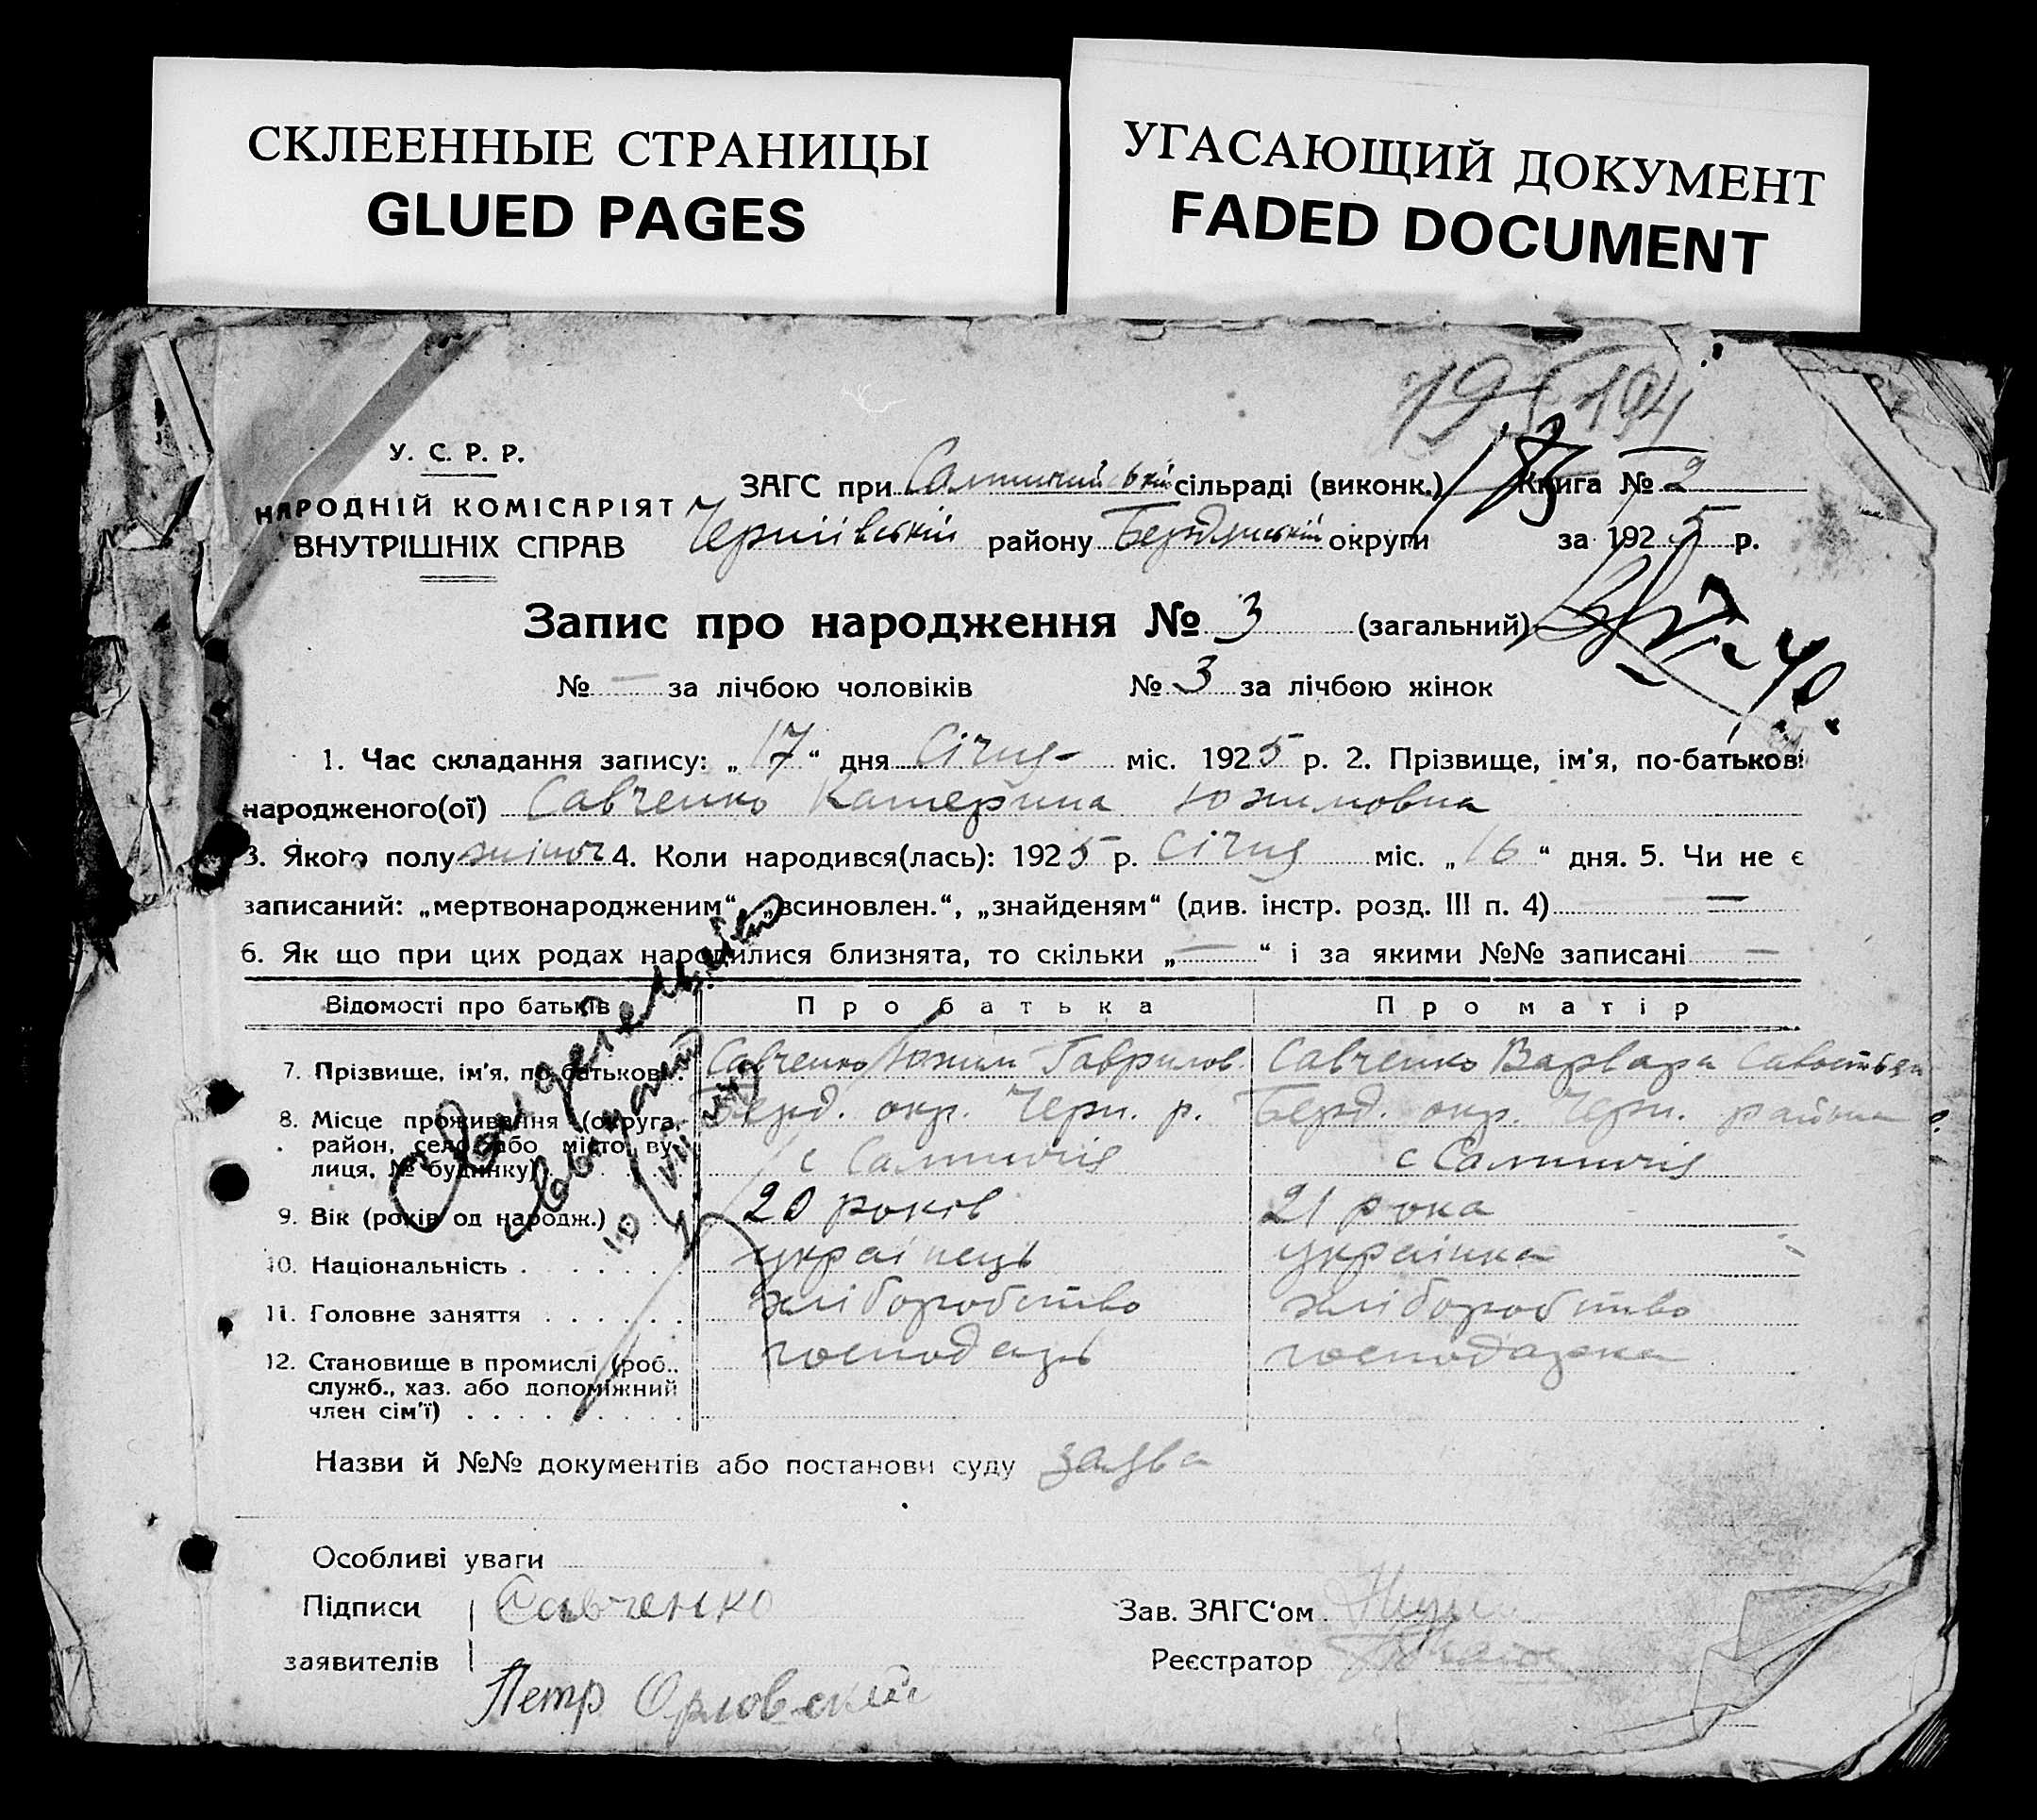 СКЛЕЕННЫЕ СТРАНИЦЫ
GLUED PAGES
УГАСАЮЩИЙ ДОКУМЕНТ
FADED DOCUMENT
194
У. С. Р. Р.
НАРОДНІЙ КОМІСАРІЯТ
ВНУТРІШНІХ СПРАВ
ЗАГС при сільраді (виконк.) Книга № 2
Чернігівській району Бердянській округи за 1925 р.
Запис про народження № 3 (загальний)
№ — за лічбою чоловіків № 3 за лічбою жінок
1. Час складання запису: „17“ дня Січня міс. 1925 р. 2. Прізвище, ім'я, по-батькові
народженого(ої) Савченко Катерина Юхимовна
3. Якого полу жіноч 4. Коли народився(лась): 1925 р. Січня міс. „16“ дня. 5. Чи не є
записаний: „мертвонародженим“, „всиновлен.“, „знайденям“ (див. інстр. розд. III п. 4) —
6. Як що при цих родах народилися близнята, то скільки „—“ і за якими №№ записані —
Відомості про батьків Про батька Про матір
7. Прізвище, ім'я, по-батькові. Савченко Юхим Гаврилов. Савченко Варвара
8. Місце проживання (округа, Берд. окр. Черн. р. Берд. окр. Черн. района
район, село або місто, ву-
лиця, № будинку)
9. Вік (років од народж.) 20 років 21 рока
10. Національність українець українка
11. Головне заняття хліборобство хліборобство
12. Становище в промислі (роб., господарь господарка
служб., хаз. або допоміжний
член сім'ї)
Назви й №№ документів або постанови суду заява
Особливі уваги
Підписи Савченко Зав. ЗАГС'ом
заявителів Реєстратор
Петр Орловский